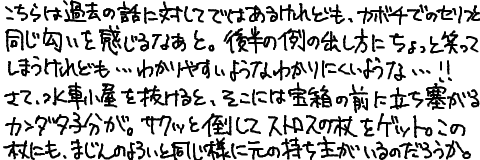 こちらは過去の話に対してではあるけれども、カボチでのセリフと
同じ匂いを感じるなあと。後半の例の出し方にちょっと笑って
しまうけれども…わかりやすいようなわかりにくいような…!!
さて、水車小屋を抜けると、そこには宝箱の前に立ち塞がる
カンダタ子分が。サクッと倒して ストロスの杖 をゲット。この
杖にも、まじんのよろいと同じ様に元の持ち主がいるのだろうか。